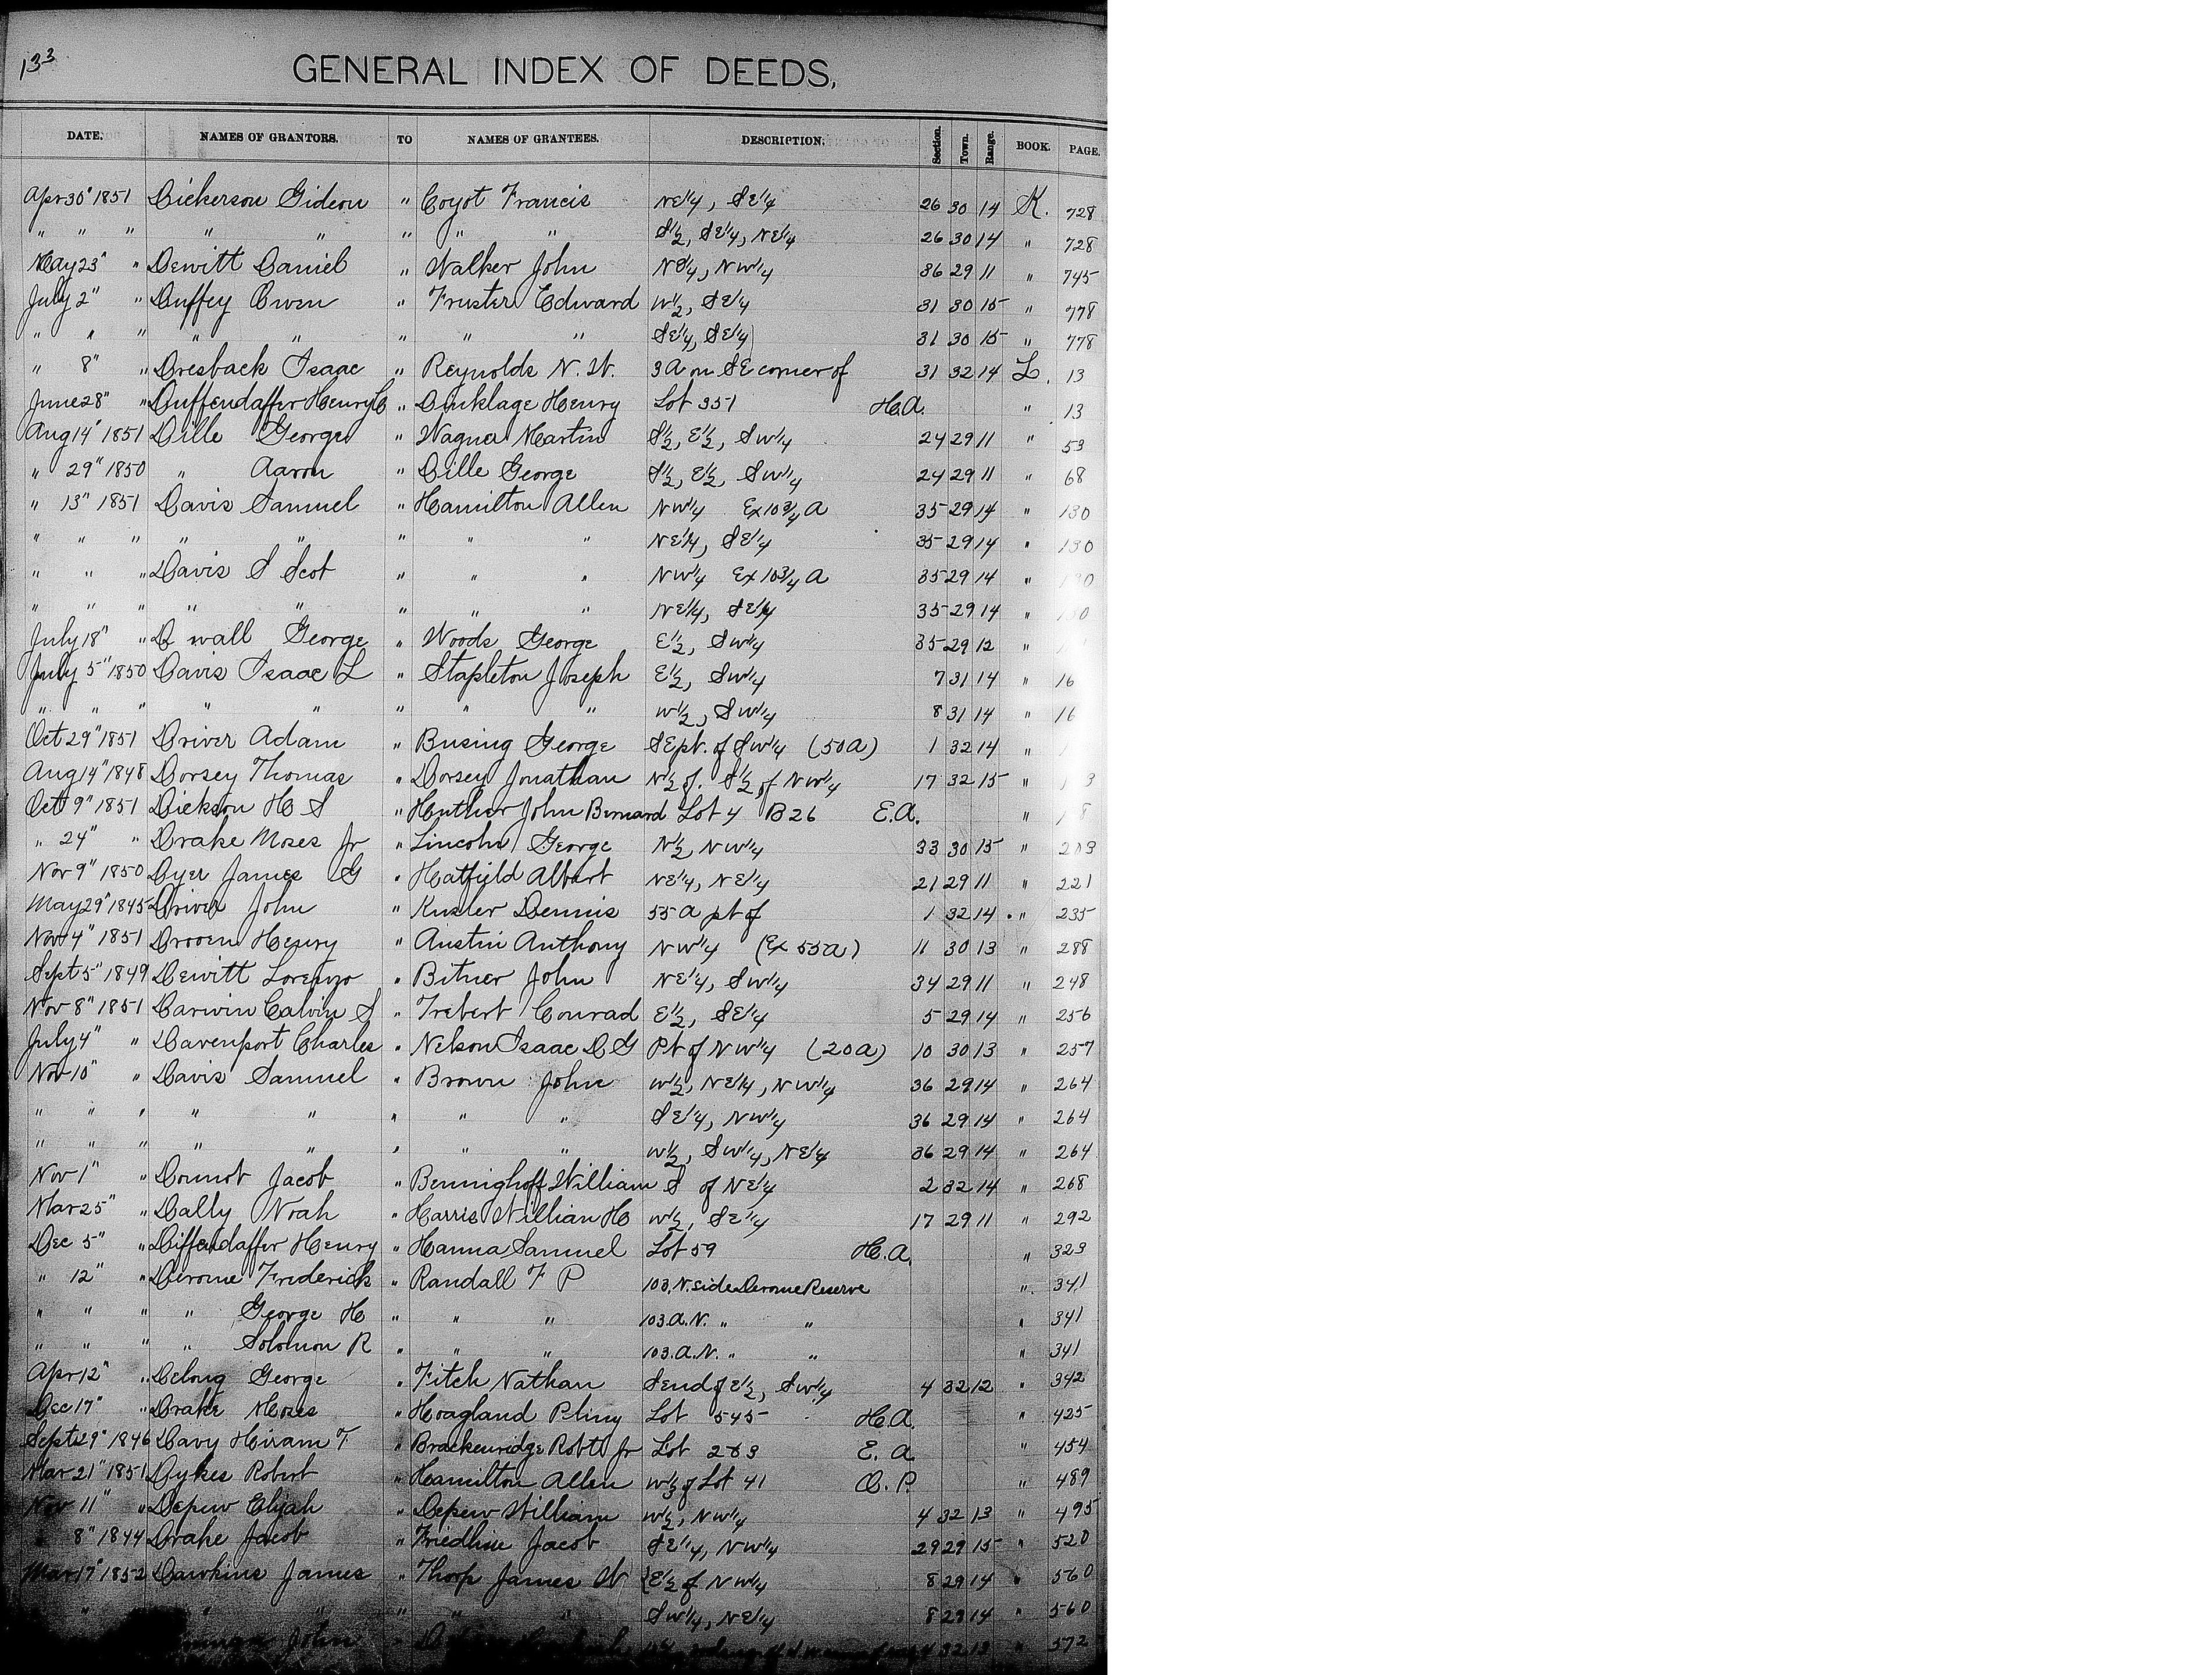 133
GENERAL INDEX OF DEEDS,
DATE. NAMES OF GRANTORS. TO NAMES OF GRANTEES. DESCRIPTION. Section. Town. Range. BOOK. PAGE.
Apr 30" 1851 Dickerson Gideon " Coyot Francis NE1/4, SE1/4 26 30 14 K. 728
" " " " " " " " S1/2, SE1/4, NE1/4 26 30 14 " 728
May 23" " Dewitt Daniel " Walker John NE1/4, NW1/4 36 29 11 " 745
July 2" " Duffey Owen " Truster Edward W1/2, SE1/4 31 30 15 " 778
" " " " " " " " SE1/4, SE1/4 31 30 15 " 778
" 8" " Dresback Isaac " Reynolds N. W. 3A on SE corner of 31 32 14 L. 13
June 28" " Duffendaffer Henry C " Dinklage Henry Lot 351 H.A. " 13
Aug 14" 1851 Dille George " Wagner Martin S1/2, E1/2, SW1/4 24 29 11 " 53
" 29" 1850 " Aaron " Dille George S1/2, E1/2, SW1/4 24 29 11 " 68
" 13" 1851 Davis Samuel " Hamilton Allen NW1/4 Ex 10 3/4 A 35 29 14 " 130
" " " " " " " " NE1/4, SE1/4 35 29 14 " 130
" " " Davis S Scot " " " NW1/4 Ex 10 3/4 A 35 29 14 "
" " " " " " " " NE1/4, SE1/4 35 29 14 "
July 18" " D wall George " Woods George E1/2, SW1/4 35 29 12 "
July 5" 1850 Davis Isaac L " Stapleton Joseph E1/2, SW1/4 7 31 14 " 16
" " " " " " " " W1/2, SW1/4 8 31 14 " 16
Oct 29" 1851 Driver Adam " Busing George SE pt. of SW1/4 (50a) 1 32 14 "
Aug 14" 1848 Dorsey Thomas " Dorsey Jonathan N1/2 of. S1/2 of NW1/4 17 32 15 "
Oct 9" 1851 Dickson H S " Huther John Bernard Lot 4 B 26 E.A. "
" 24" " Drake Moses Jr " Lincoln George N1/2, NW1/4 33 30 15 " 203
Nov 9" 1850 Dyer James G " Hatfield Albert NE1/4, NE1/4 21 29 11 " 221
May 29" 1845 Driver John " Kusler Dennis 55 A pt of 1 32 14 " 235
Nov 4" 1851 Drooen Henry " Austin Anthony NW1/4 (Ex 55a) 11 30 13 " 288
Sept 5" 1849 Dewitt Lorenzo " Bitner John NE1/4, SW1/4 34 29 11 " 248
Nov 8" 1851 Darwin Calvin S " Trebert Conrad E1/2, SE1/4 5 29 14 " 256
July 4" " Davenport Charles " Nelson Isaac D G Pt of NW1/4 (20a) 10 30 13 " 257
Nov 10" " Davis Samuel " Brown John W1/2, NE1/4, NW1/4 36 29 14 " 264
" " " " " " " " SE1/4, NW1/4 36 29 14 " 264
" " " " " " " " W1/2, SW1/4, NE1/4 36 29 14 " 264
Nov 1" " Donnot Jacob " Benninghoff William S of NE1/4 2 32 14 " 268
Mar 25" " Dally Noah " Harris William H W1/2, SE1/4 17 29 11 " 292
Dec 5" " Diffendaffer Henry " Hanna Samuel Lot 59 H.A. " 323
" 12" " Derome Frederick " Randall F P 103. N. side Derome Reserve " 341
" " " " George H " " " 103. A. N. " " " 341
" " " " Solomon R " " " 103. A. N. " " " 341
Apr 12" " Delong George " Fitch Nathan S end of E1/2, SW1/4 4 32 12 " 342
Dec 17" " Drake Moses " Hoagland Pliny Lot 545 H.A. " 425
Sept 29" 1846 Davy Hiram T " Brackenridge Robt Jr Lot 2 & 3 E. A. " 454
Mar 21" 1851 Dykes Robert " Hamilton Allen W1/3 of Lot 41 O. P. " 489
Nov 11" " Depew Elijah " Depew William W1/2, NW1/4 4 32 13 " 495
" 8" 1844 Drake Jacob " Friedline Jacob SE1/4, NW1/4 29 29 15 " 520
Mar 17" 1852 Dawkins James " Thorp James W E1/2 of NW1/4 8 29 14 " 560
" " " " " " SW1/4, NE1/4 8 29 14 " 560
John " 4 32 13 " 572